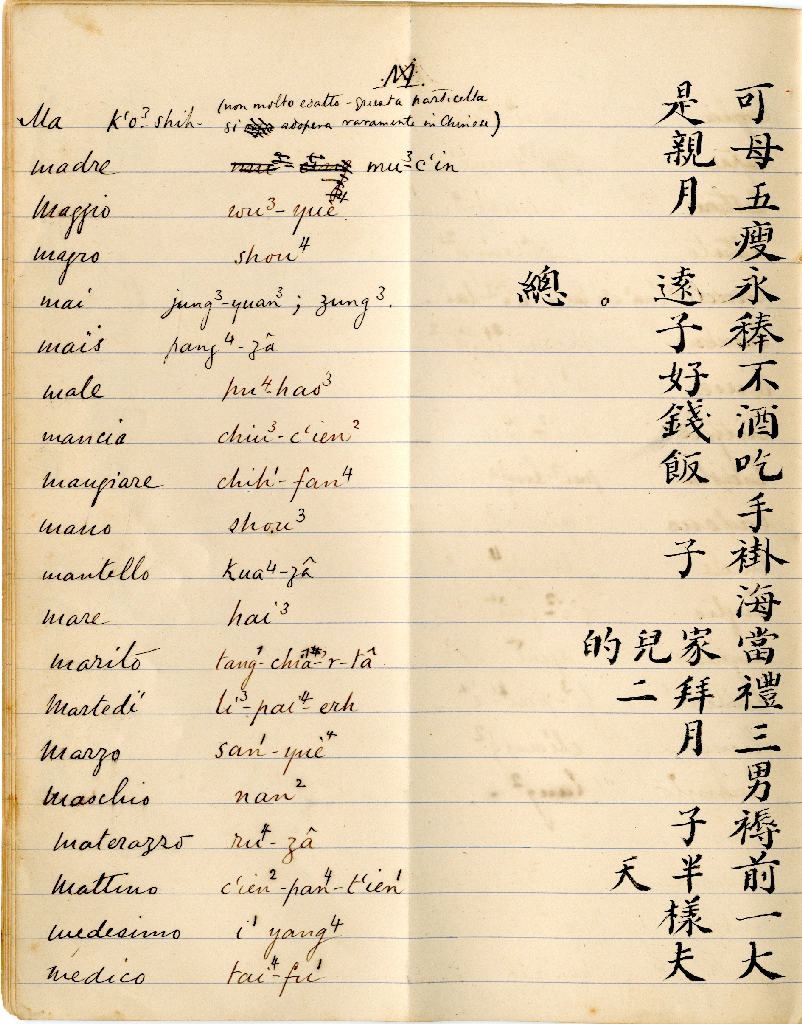 M
Ma k'o³-shih- (non molto esatto - questa particella
si adopera raramente in Chinese) 可是
madre mu³-c'in 母親
Maggio wu³-yüè 五月
magro shou⁴ 瘦
mai jung³-yuan³; zung³. 永遠。總
maïs pang⁴-zâ 稑子
male pu⁴-hao³ 不好
mancia chiu³-c'ien² 酒錢
mangiare chih¹-fan⁴ 吃飯
mano shou³ 手
mantello kua⁴-zâ 褂子
mare hai³ 海
marito tang¹-chia¹-r-tâ 當家兒的
Martedì li³-pai⁴-erh 禮拜二
Marzo san¹-yüè⁴ 三月
maschio nan² 男
materazzo ru⁴-zâ 褥子
mattino c'ien²-pan⁴-t'ien¹ 前半天
medesimo i¹ yang⁴ 一樣
medico tai⁴-fu¹ 大夫